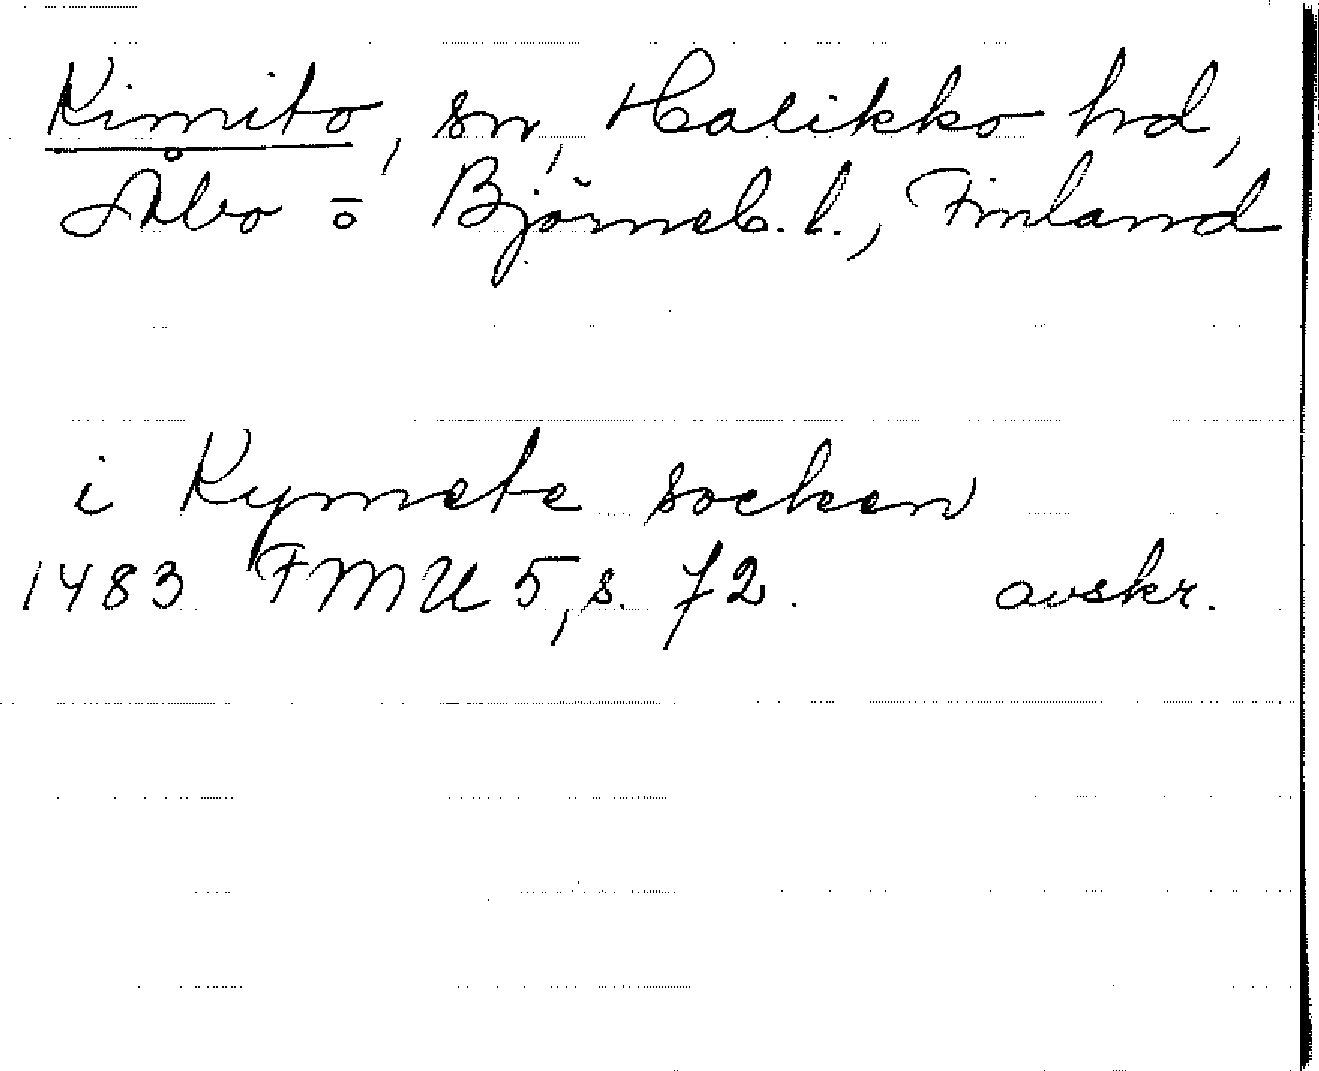 Kimito, sn, Halikko hd,
Åbo o Björneb. l., Finland
i Kymete socken
1483 FMU 5, s. 72. avskr.